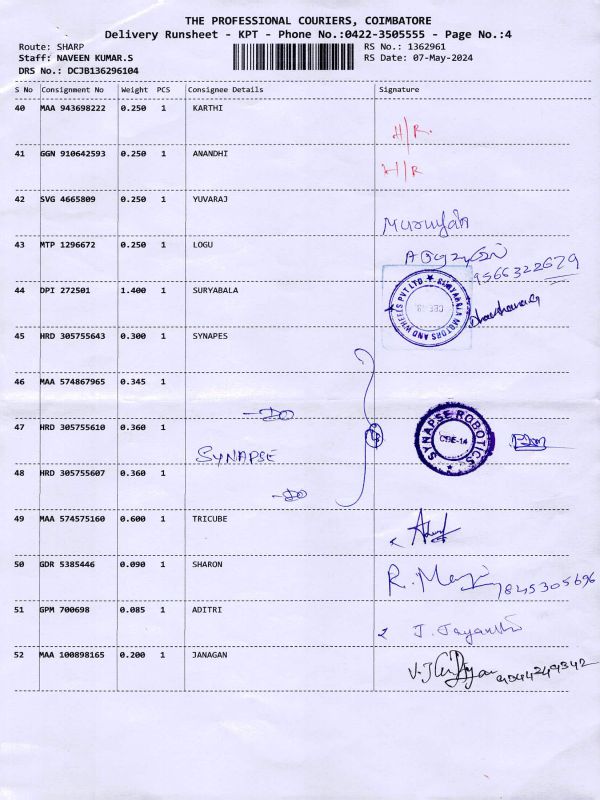 THE PROFESSIONAL COURIERS, COIMBATORE
Delivery Runsheet - KPT - Phone No.:0422-3505555 - Page No.:4
Route: SHARP
RS No.: 1362961
Staff: NAVEEN KUMAR.S
RS Date: 07-May-2024
DRS No.: DCJB136296104
S No Consignment No Weight PCS Consignee Details Signature
40 MAA 943698222 0.250 1 KARTHI
H/R.
41 GGN 910642593 0.250 1 ANANDHI
H/R
42 SVG 4665809 0.250 1 YUVARAJ
43 MTP 1296672 0.250 1 LOGU
9566322679
44 DPI 272501 1.400 1 SURYABALA
MOTORS AND WHEELS PVT LTD
45 HRD 305755643 0.300 1 SYNAPES
46 MAA 574867965 0.345 1
-DO
47 HRD 305755610 0.360 1
SYNAPSE
SYNAPSE ROBOTICS
CBE-14
48 HRD 305755607 0.360 1
-DO
49 MAA 574575160 0.600 1 TRICUBE
50 GDR 5385446 0.090 1 SHARON
7845305696
51 GPM 700698 0.085 1 ADITRI
J. Jayanthi
52 MAA 100898165 0.200 1 JANAGAN